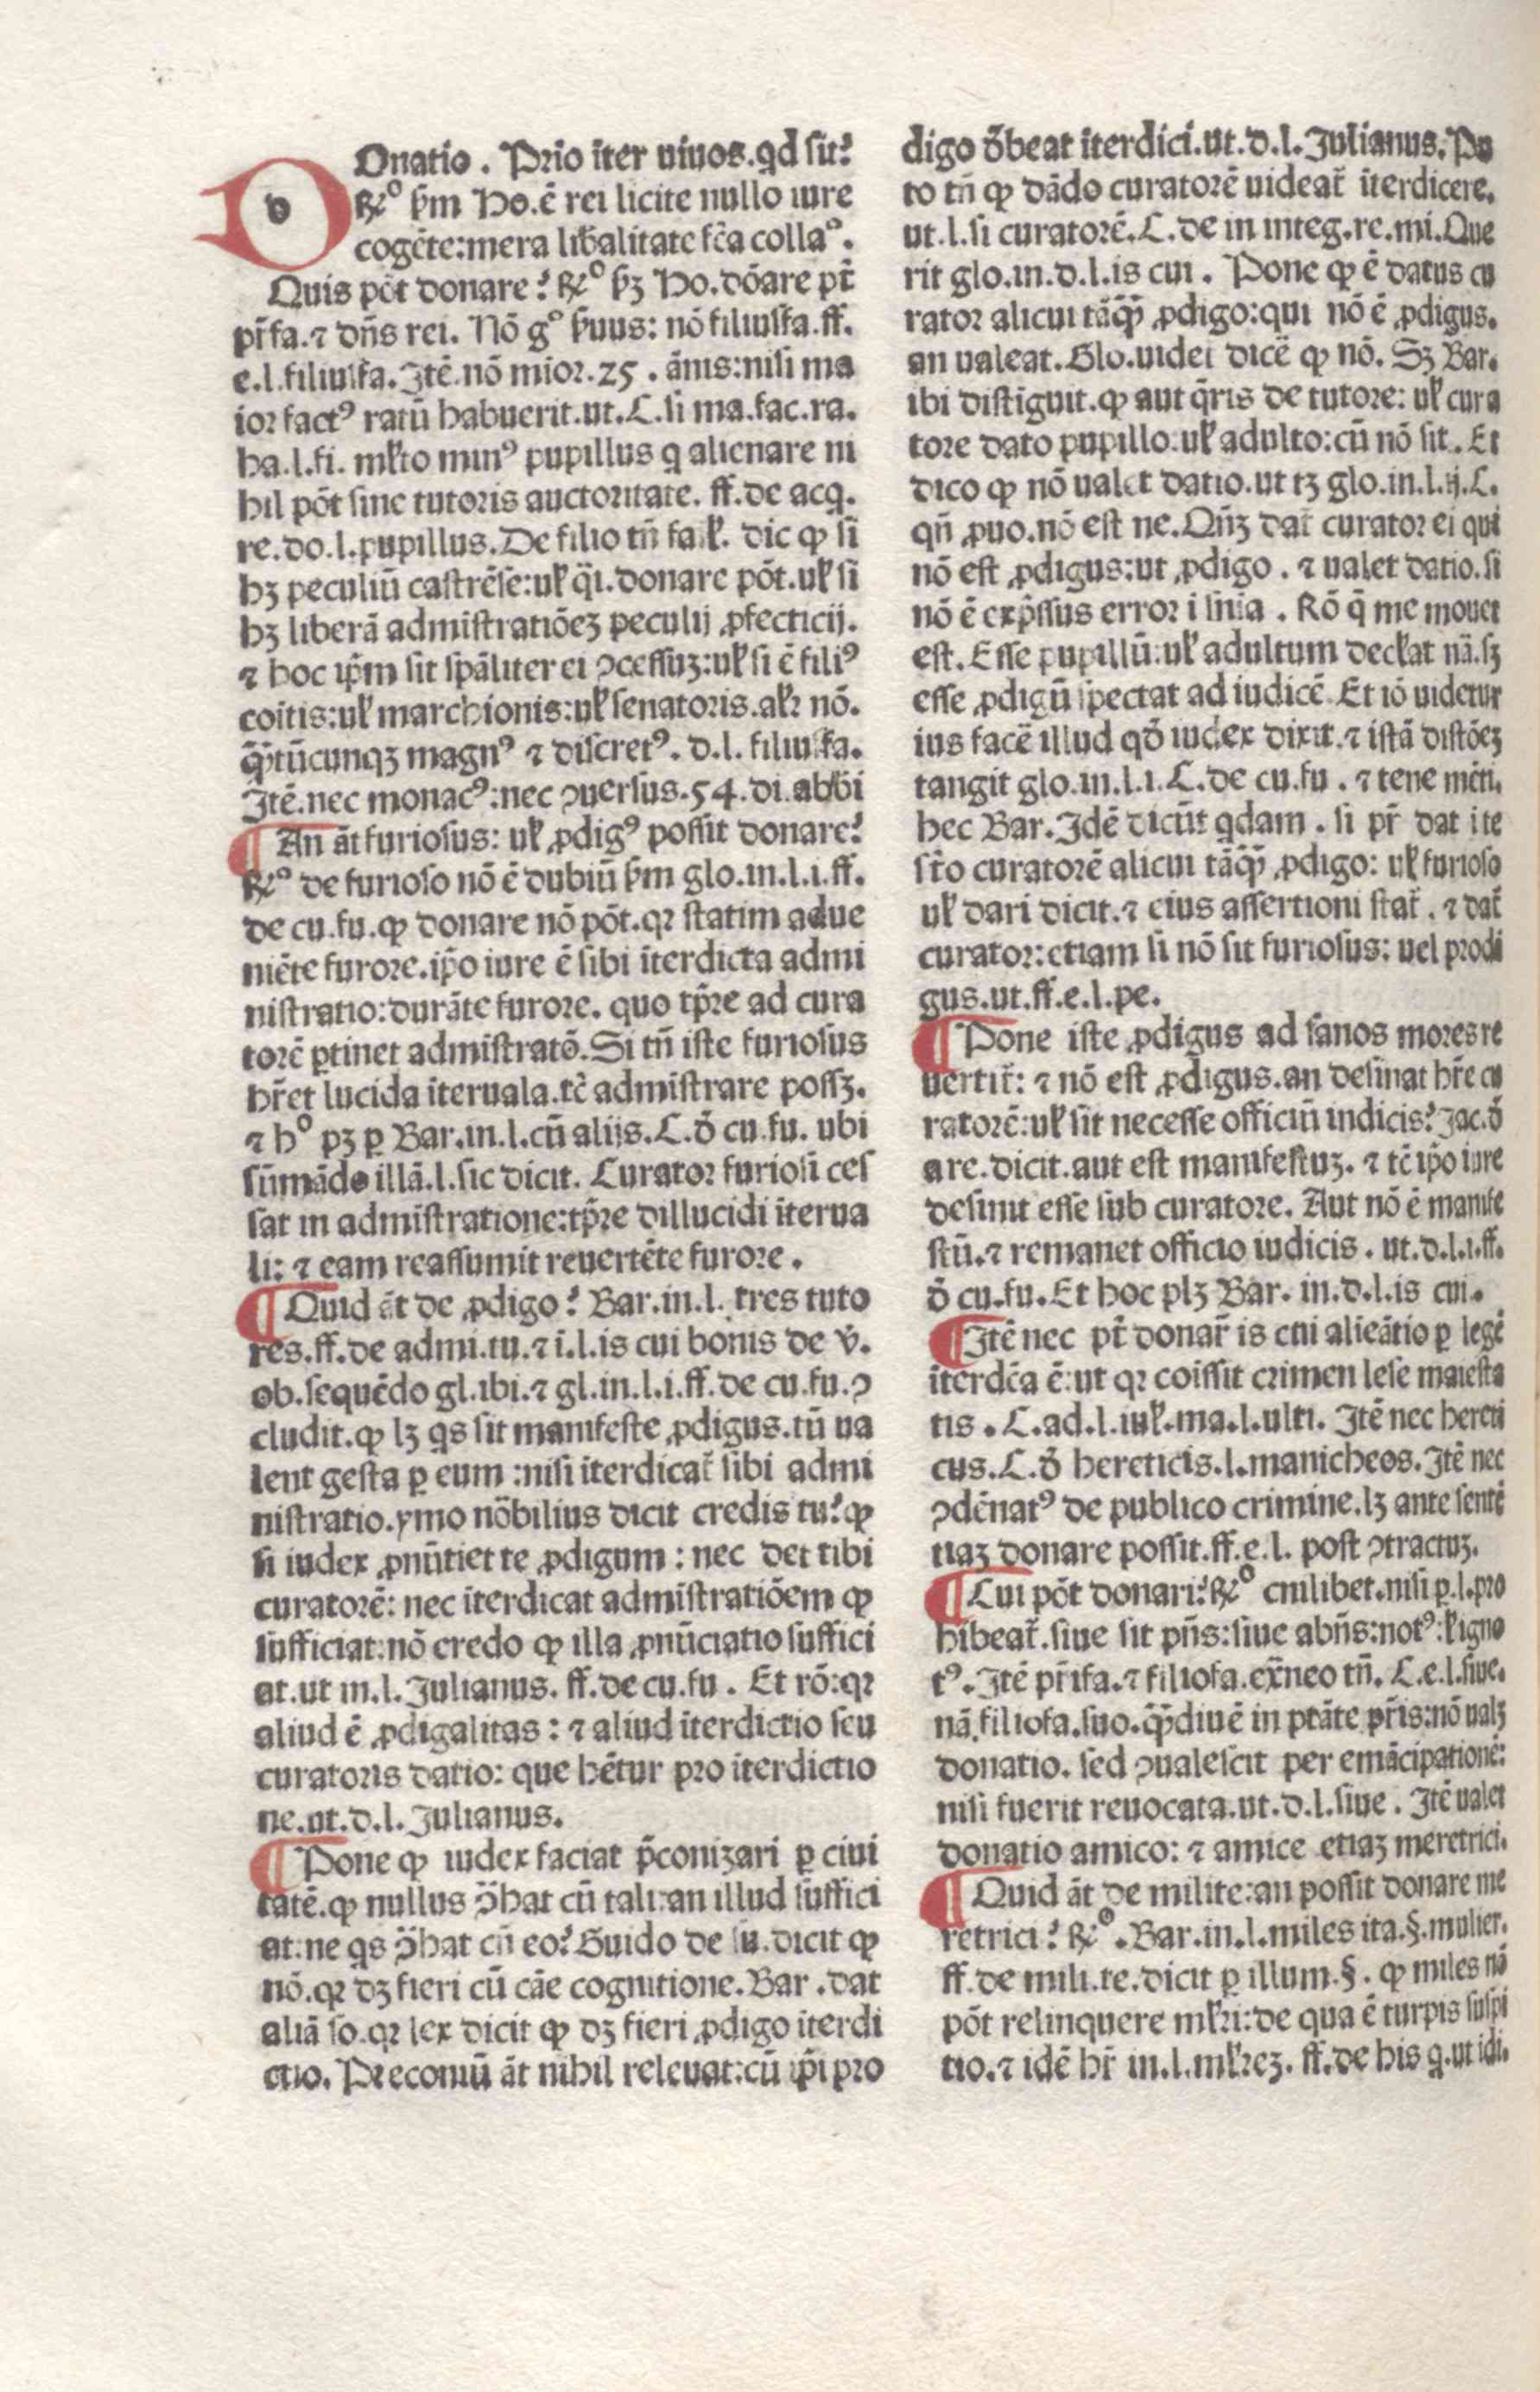 DOnatio . Prīo īter uiuos.qd sit?
R̄º scḋm Ho.ē rei licite nullo iure
cogēte:mera libalitate fc̄a collaº.
Quis pōt donare? R̄º sz Ho.dōare pt̄
pr̄fa.⁊ dn̄s rei. Nō gº ẜuus: nō filiusfa.ff.
e.l.filiusfa.Itē.nō mīor.25.ānis:nisi ma
ior factꝰ ratū habuerit.ut.C.si ma.fac.ra.
ha.l.fi. mlto minꝰ pupillus q alienare ni
hil pōt sine tutoris auctoritate. ff.de acq.
re.do.l.pupillus.De filio tn̄ fal. dic ꝙ si
hꝫ peculiū castrēse:ul q̄i.donare pōt.ul si
hꝫ liberā admistratiōeꝫ peculij ꝓfecticij.
⁊ hoc ip̄m sit spāliter ei ↄcessuꝫ:ul si ē filiꝰ
coitis:ul marchionis:ul senatoris.alr nō.
qꝙtūcunqꝫ magnꝰ ⁊ discretꝰ. d.l. filiusfa.
Itē.nec monacꝰ:nec ↄuersus.54.di.abbi
¶ An āt furiosus: ul ꝓdigꝰ possit donare?
R̄º de furioso nō ē dubiū ẜm glo.in.l.i.ff.
de cu.fu.ꝙ donare nō pōt.qꝛ statim adue
niēte furore.ip̄o iure ē sibi īterdicta admi
nistratio:durāte furore. quo tp̄re ad cura
torē ꝑtinet admistratō.Si tn̄ iste furiosus
hr̄et lucida īteruala.tc̄ admistrare possꝫ.
⁊ hº pꝫ ꝑ Bar.in.l.cū alijs.C.ō cu.fu. ubi
sūmādo illā.l.sic dicit. Curator furiosi ces
sat in admistratione:tp̄re dillucidi īterua
li: ⁊ eam reassumit reuertēte furore .
¶ Quid āt de ꝓdigo? Bar.in.l. tres tuto
res.ff.de admi.tu.⁊ ī.l.is cui bonis de v̄.
ob.sequēdo gl.ibi.⁊ gl.in.l.i.ff.de cu.fu.ↄ
cludit.ꝙ lꝫ qs sit manifeste ꝓdigus.tū ua
lent gesta ꝑ eum :nisi īterdicat̄ sibi admi
nistratio.ymo nōbilius dicit credis tu?ꝙ
si iudex ꝓnūtiet te ꝓdigum : nec det tibi
curatorē: nec īterdicat admistratiōem ꝙ
sufficiat:nō credo ꝙ illa ꝓnūciatio suffici
at.ut in.l. Julianus. ff.de cu.fu . Et rō:qꝛ
aliud ē ꝓdigalitas : ⁊ aliud īterdictio seu
curatoris datio: que hētur pro īterdictio
ne.ut.d.l. Julianus.
¶ Pone ꝙ iudex faciat p̄conizari ꝑ ciui
tatē.ꝙ nullus ↄ̄hat cū tali:an illud suffici
at:ne qs ↄ̄hat cū eo? Guido de su.dicit ꝙ
nō.qꝛ dꝫ fieri cū cāe cognitione.Bar .dat
aliā so.qꝛ lex dicit ꝙ dꝫ fieri ꝓdigo īterdi
ctio. Preconiū āt nihil releuat:cū ip̄i pro
digo ōbeat īterdici.ut.d.l.Julianus.Pu
to tn̄ ꝙ dādo curatorē uideat̄ īterdicere.
ut.l.si curatorē.C.de in integ.re.mi.Que
rit glo.in.d.l.is cui . Pone ꝙ ē datus cu
rator alicui tāqꝙ ꝓdigo:qui nō ē ꝓdigus.
an ualeat.Glo.uidet̄ dicē ꝙ nō. Sꝫ Bar.
ibi distīguit.ꝙ aut q̄ris de tutore: ul cura
tore dato pupillo:ul adulto:cū nō sit . Et
dico ꝙ nō ualet datio.ut tꝫ glo.in.l.ij.C.
qn̄ ꝓuo.nō est ne.Qn̄ꝫ dat̄ curator ei qui
nō est ꝓdigus:ut ꝓdigo . ⁊ ualet datio.si
nō ē exp̄ssus error ī sn̄ia . Rō q̄ me mouet
est. Esse pupillū:ul adultum declat nā.sꝫ
esse ꝓdigū spectat ad iudicē. Et iō uidetur
ius facē illud qō iudex dixit.⁊ istā distōeꝫ
tangit glo.in.l.i.C.de cu.fu . ⁊ tene mēti.
hec Bar.Idē dicūt qdam . si pr̄ dat ī te
sto curatorē alicui tāqꝙ ꝓdigo: ul furioso
ul dari dicit.⁊ eius assertioni stat̄ . ⁊ dat̄
curator:etiam si nō sit furiosus: uel prodi
gus.ut.ff.e.l.pe.
¶ Pone iste ꝓdigus ad sanos mores re
uertit̄: ⁊ nō est ꝓdigus.an desinat hr̄e cu
ratorē:ul sit necesse officiū iudicis? Jac.ō
are.dicit.aut est manifestuꝫ. ⁊ tc̄ ip̄o iure
desinit esse sub curatore. Aut nō ē manife
stū.⁊ remanet officio iudicis . ut.d.l.i.ff.
ō cu.fu.Et hoc plꝫ Bar. in.d.l.is cui.
¶ Itē nec pt̄ donar̄ is cui alieātio ꝑ legē
īterdc̄a ē:ut qꝛ coissit crimen lese maiesta
tis . C.ad.l.iul.ma.l.ulti. Itē nec hereti
cus.C.ō hereticis.l.manicheos.Itē nec
ↄdēnatꝰ de publico crimine.lꝫ ante sentē
tiaꝫ donare possit.ff.e.l. post ↄtractuꝫ.
¶ Cui pōt donari?R̄º cuilibet.nisi ꝑ.l.pro
hibeat̄.siue sit pn̄s:siue abn̄s:notꝰ:l igno
tꝰ.Itē pr̄ifa.⁊ filiofa.ex̄neo tn̄. C.e.l.siue.
nā.filiofa.suo.qꝙdiu ē in ptāte pr̄is:nō ualꝫ
donatio. sed ↄualescit per emācipationē:
nisi fuerit reuocata.ut.d.l.siue . Itē ualet
donatio amico: ⁊ amice etiaꝫ meretrici.
¶ Quid āt de milite:an possit donare me
retrici ? R̄º.Bar.in.l.miles ita.§.mulier.
ff.de mili.te.dicit ꝑ illum.§. ꝙ miles nō
pōt relinquere mlri:de qua ē turpis suspi
tio.⁊ idē hr̄ in.l.mlreꝫ. ff.de his q.ut īdi.